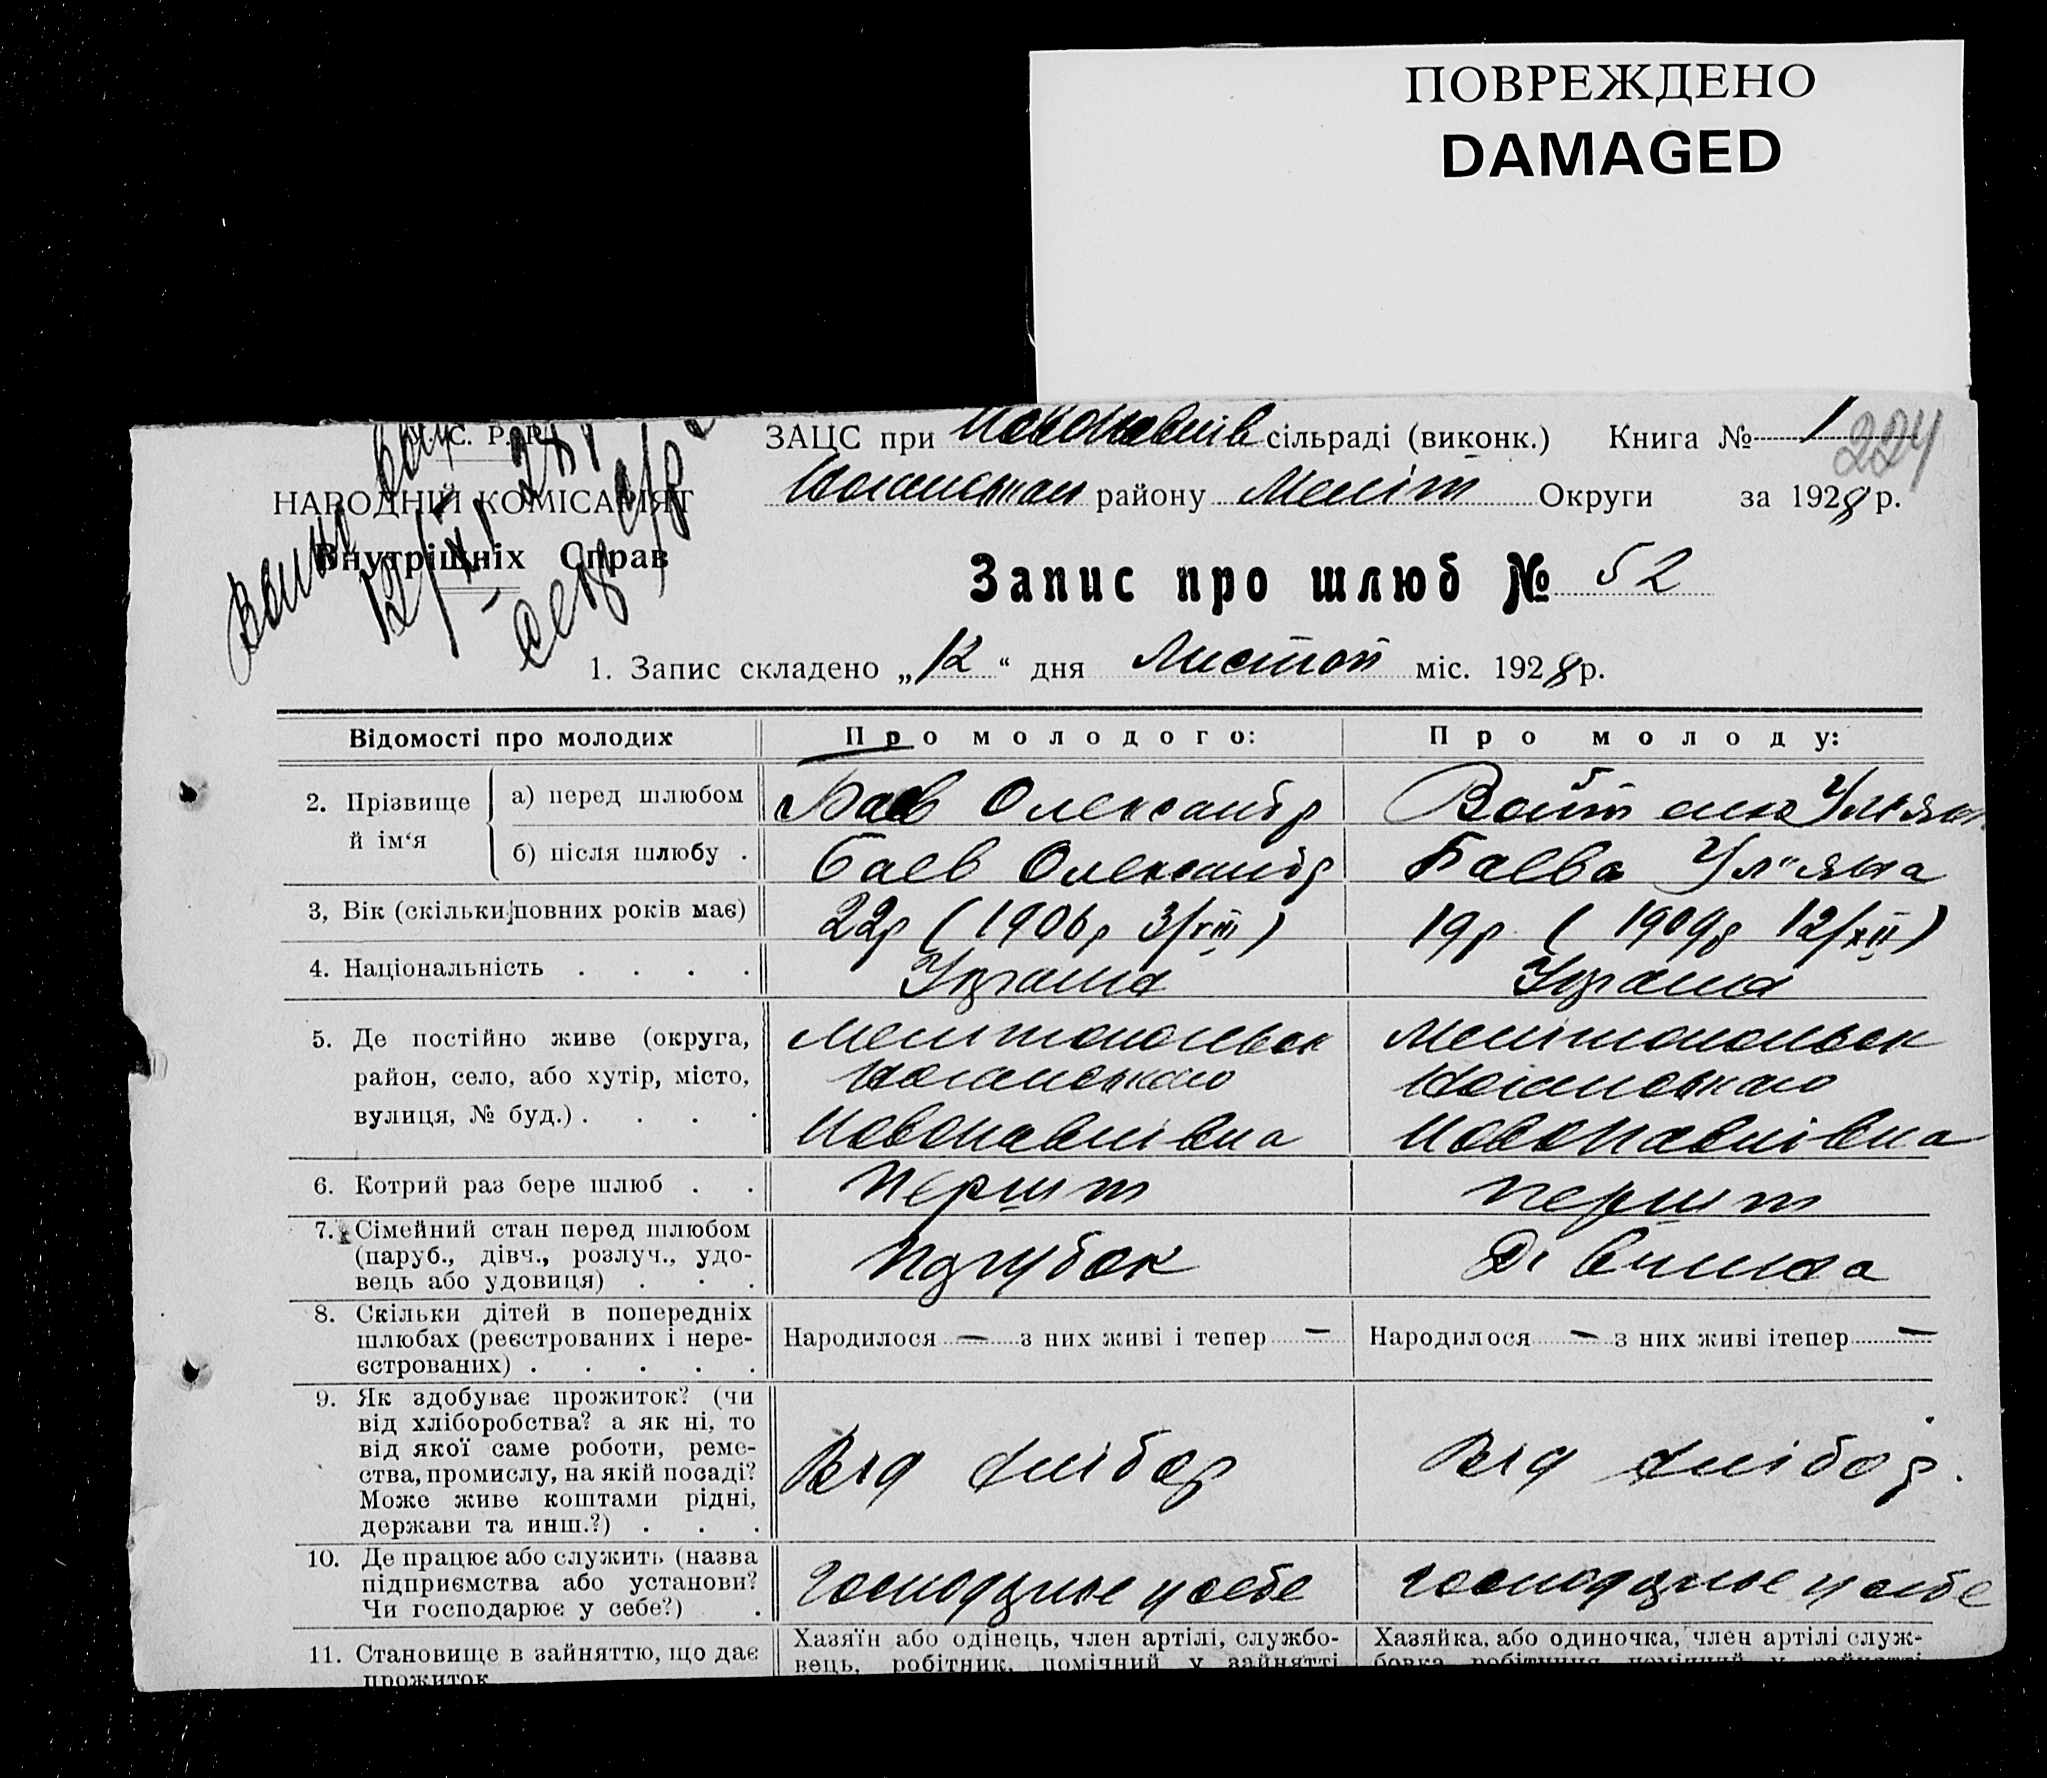 ПОВРЕЖДЕНО
DAMAGED
С. Р. Р.
ЗАЦС при Новопавлів сільраді (виконк.) Книга № 1
224
НАРОДНІЙ КОМІСАРІЯТ
Ногайськом району Меліт Округи за 1928 р.
Внутрішніх Справ
12/XI - 28
Запис про шлюб № 52
1. Запис складено „12“ дня Листоп міс. 1928 р.
Відомості про молодих
Про молодого:
Про молоду:
2. Прізвище й ім‘я
а) перед шлюбом
Баєв Олександр
Войтенко Уляна
б) після шлюбу .
Баєв Олександр
Баєва Ул"яна
3, Вік (скільки повних років має)
22р (1906р 3/VIII)
19р. (1909р 12/XII)
4. Національність . . . .
Україна
Україна
5. Де постійно живе (округа,
район, село, або хутір, місто,
вулиця, № буд.) . . . .
Мелітопольськ
Ногайського
Новопавлівка
Мелітопольськ
Ногайського
Новопавлівка
6. Котрий раз бере шлюб . .
Перший
перший
7. Сімейний стан перед шлюбом
(паруб., дівч., розлуч., удо-
вець або удовиця) . . .
Парубок
Дівчина
8. Скільки дітей в попередніх
шлюбах (реєстрованих і нере-
єстрованих) . . . . .
Народилося — з них живі і тепер —
Народилося — з них живі ітепер —
9. Як здобуває прожиток? (чи
від хліборобства? а як ні, то
від якої саме роботи, реме-
ства, промислу, на якій посаді?
Може живе коштами рідні,
держави та инш.?) . . .
Від хлібор
Від хлібор.
10. Де працює або служить (назва
підприємства або установи?
Чи господарює у себе?) .
господарює у себе
господарює у себе
11. Становище в зайняттю, що дає
прожиток
Хазяїн або одінець, член артілі, службо-
вець, робітник, помічний у зайнятті
Хазяйка, або одиночка, член артілі служ-
бовка робітниця помічний у зайнятті